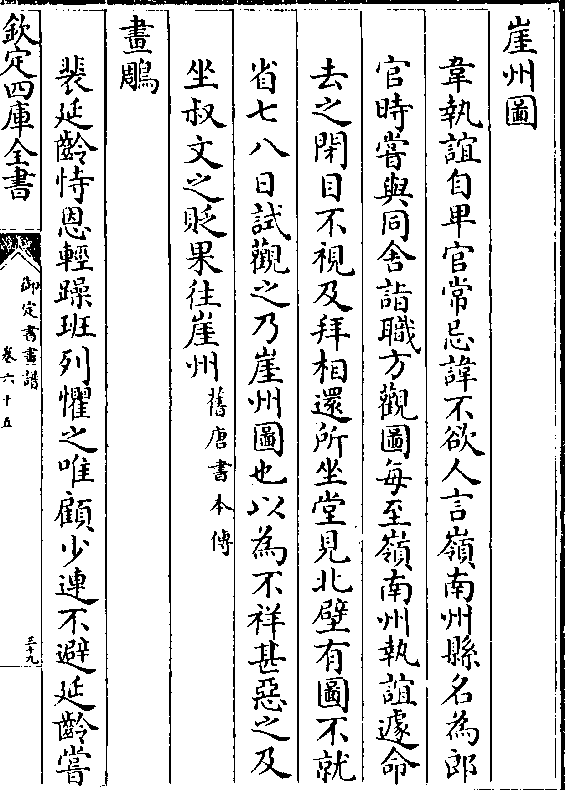 崖州圖
韋執誼自卑官常忌諱不欲人言嶺南州縣名為郎
官時嘗與同舍詣職方觀圖每至嶺南州執誼遽命
去之閉目不視及拜相還所坐堂見北壁有圖不就
省七八日試觀之乃崖州圖也以為不祥甚惡之及
坐叔文之貶果往崖州舊唐書本傳
畫鵰
裴延齡恃恩輕躁班列懼之唯顧少連不避延齡嘗
欽定四庫全書
御定書畫譜
卷六十五
三十九